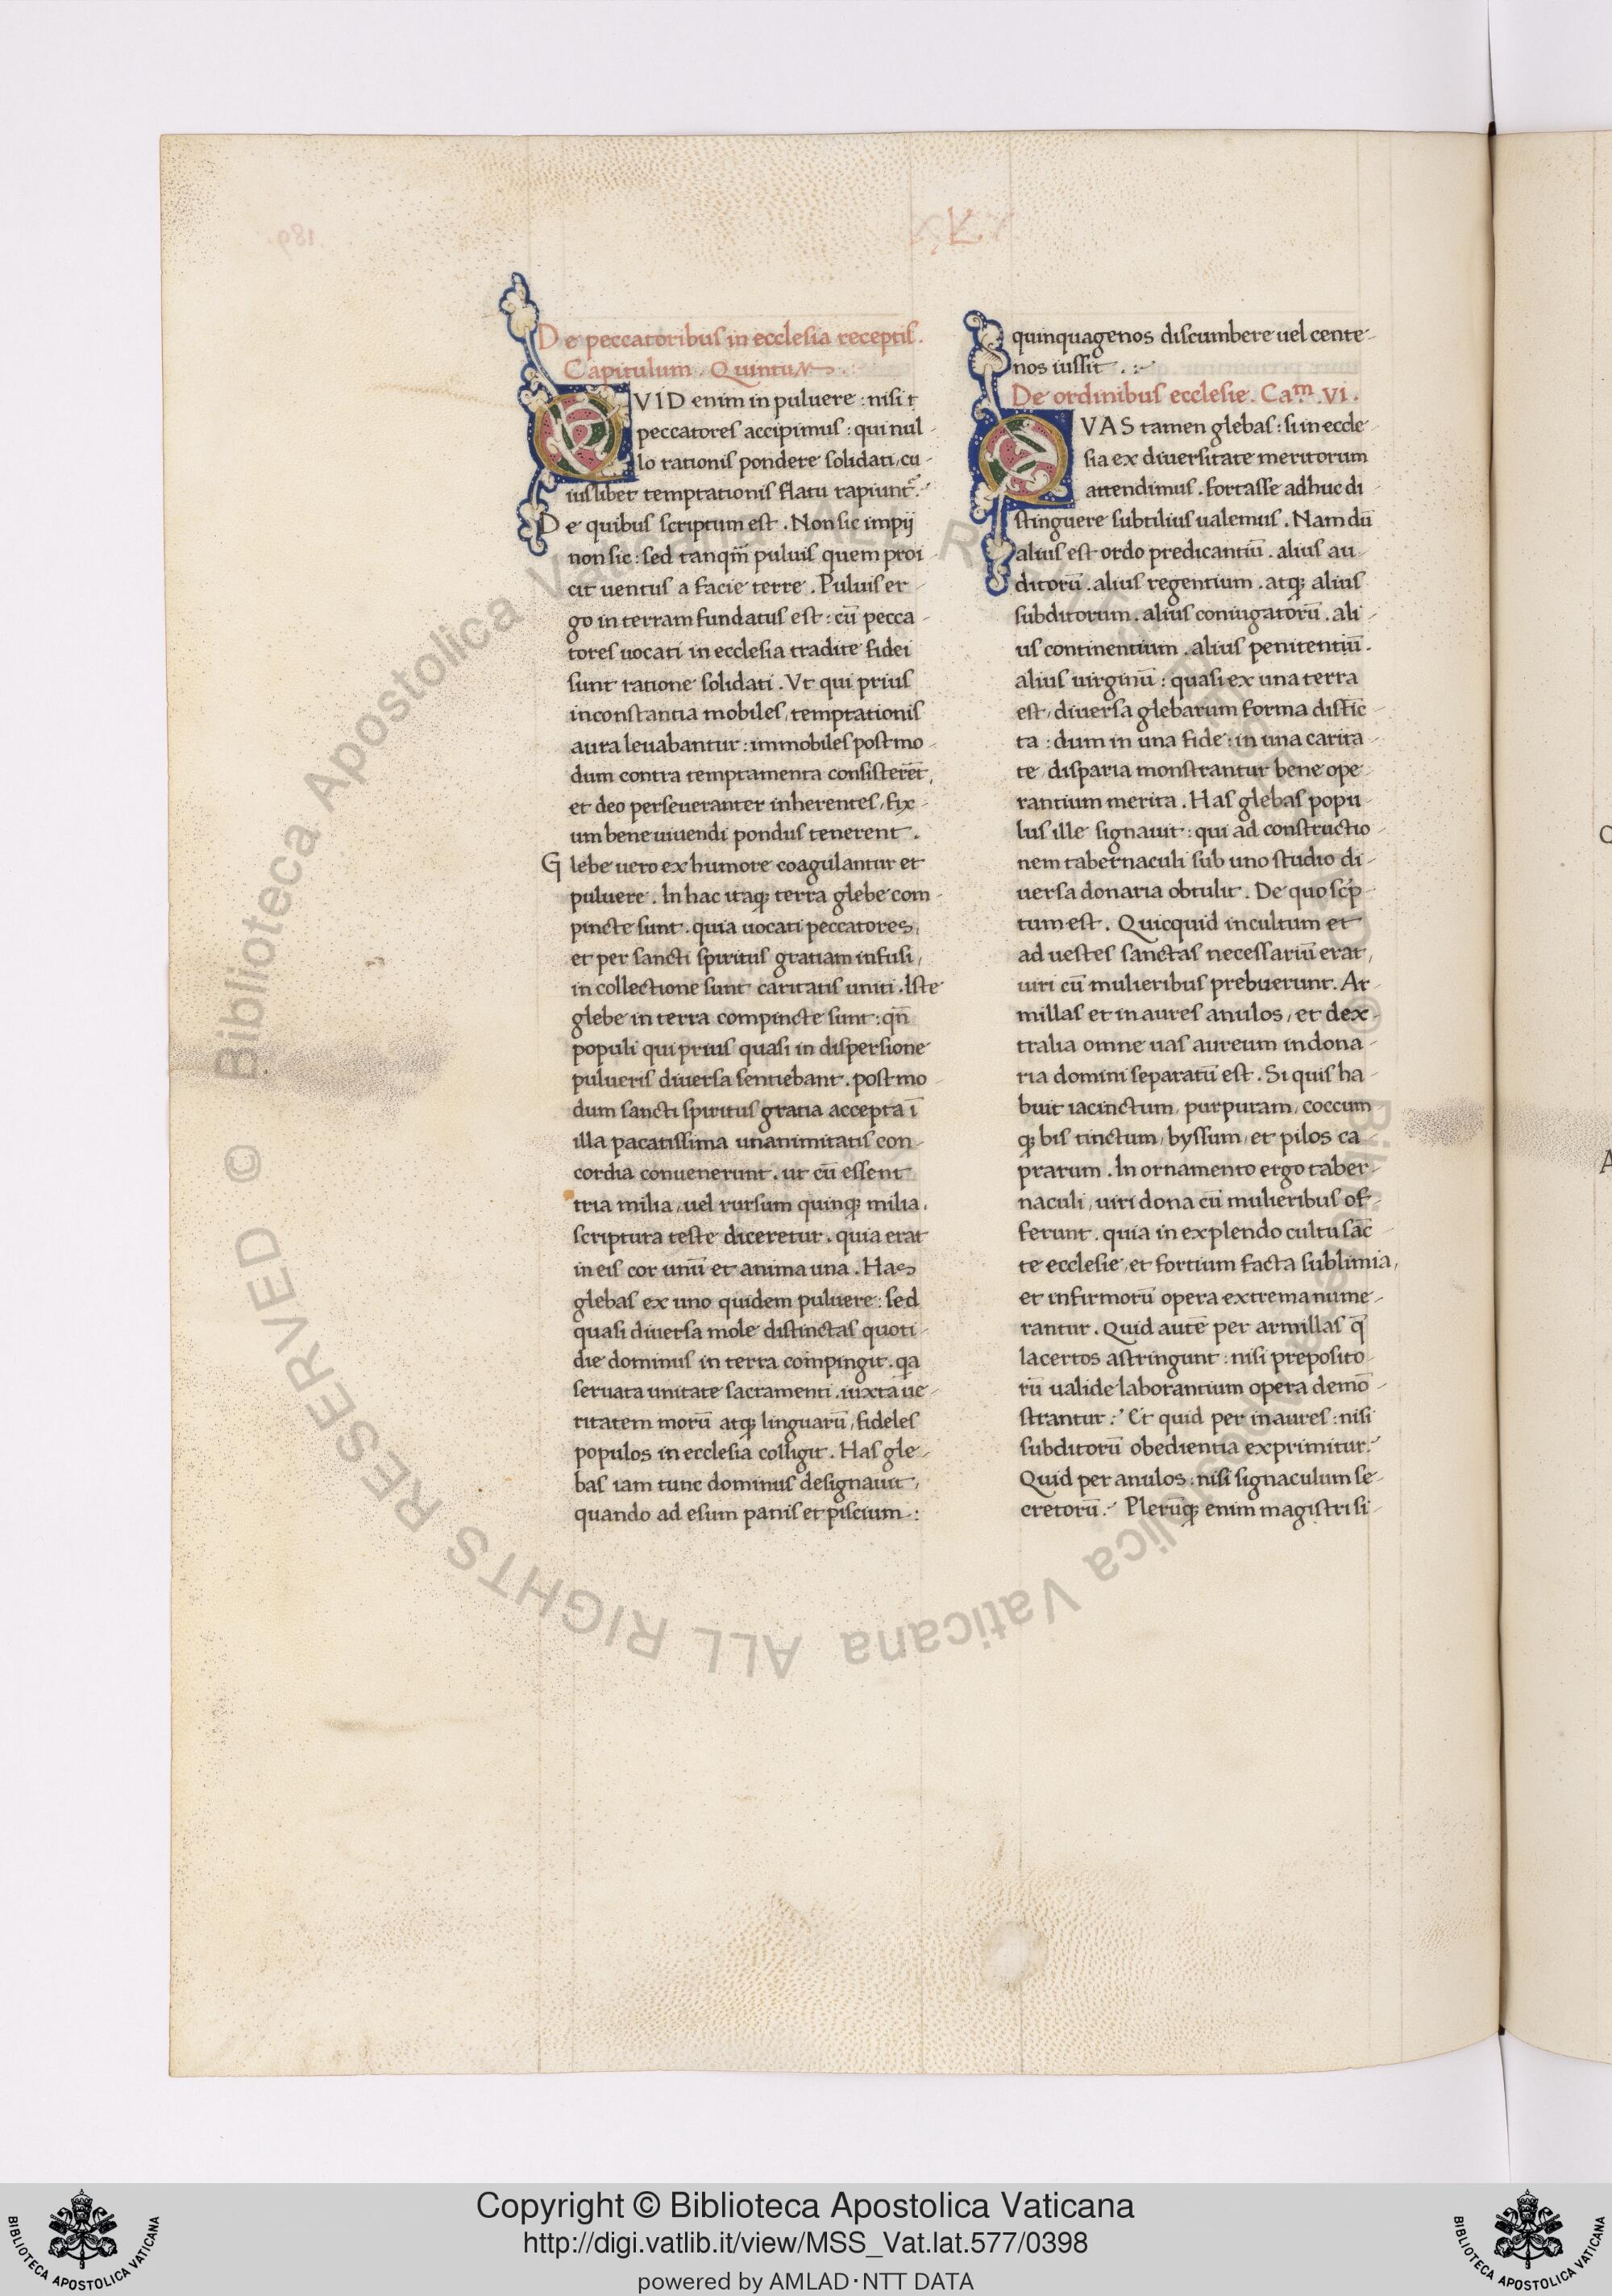 De peccatoribus in ecclesia receptis.
Capitulum. Quintum
QVID enim in puluere: nisi
peccatores accipimus: qui nul-
lo rationis pondere solidati, cu-
iuslibet temptationis flatu rapiunt̃.
De quibus scriptum est. Non sic impij
non sic: sed tanqm̃ puluis quem proi
cit uentus a facie terre. Puluis er-
go in terram fundatus est: cū pecca-
tores uocati in ecclesia tradite fidei
sunt ratione solidati. Vt qui prius
inconstantia mobiles, temptationis
aura leuabantur: immobiles post mo-
dum contra temptamenta consisterēt,
et deo perseueranter inherentes, fix-
um bene uiuendi pondus tenerent.
Glebe uero ex humore coagulantur et
puluere. In hac itaq; terra glebe com-
pincte sunt. quia uocati peccatores,
et per sancti spiritus gratiam infusi,
in collectione sunt caritatis uniti. Iste
glebe in terra compincte sunt: qñ
populi qui prius quasi in dispersione
pulueris diuersa sentiebant. post mo-
dum sancti spiritus gratia accepta ī
illa pacatissima unanimitatis con-
cordia conuenerunt. ut cū essent
tria milia, uel rursum quinq; milia,
scriptura teste diceretur. quia erat
in eis cor unū et anima una. Has
glebas ex uno quidem puluere: sed
quasi diuersa mole distinctas quoti-
die dominus in terra compingit. qa
seruata unitate sacramenti. iuxta ue-
ritatem morū atq; linguarū, fideles
populos in ecclesia colligit. Has gle-
bas iam tunc dominus designauit,
quando ad esum panis et piscium:
quinquagenos discumbere uel cente-
nos iussit.
De ordinibus ecclesie. Caᵐ. VI.
QVAS tamen glebas: si in eccle-
sia ex diuersitate meritorum
attendimus. fortasse adhuc di
stinguere subtilius ualemus. Nam dū
alius est ordo predicantiū. alius au
ditorū. alius regentium. atq; alius
subditorum. alius coniugatorū. ali-
us continentium. alius penitentiū.
alius uirginū: quasi ex una terra
est, diuersa glebarum forma distīc
ta: dum in una fide: in una carita-
te, disparia monstrantur bene ope-
rantium merita. Has glebas popu-
lus ille signauit: qui ad constructio-
nem tabernaculi sub uno studio di-
uersa donaria obtulit. De quo scp̄-
tum est. Quicquid in cultum et
ad uestes sanctas necessariū erat,
uiri cū mulieribus prebuerunt. Ar-
millas et inaures anulos, et dex-
tralia omne uas aureum in dona-
ria domini separatū est. Si quis ha-
buit iacinctum, purpuram, coccum-
q; bis tinctum, byssum, et pilos ca-
prarum. In ornamento ergo taber-
naculi, uiri dona cū mulieribus of-
ferunt. quia in explendo cultu sāc-
te ecclesie, et fortium facta sublimia,
et infirmorū opera extrema nume-
rantur. Quid autē per armillas q̄
lacertos astringunt: nisi preposito-
rū ualide laborantium opera demō-
strantur: Et quid per inaures: nisi
subditorū obedientia exprimitur:
Quid per anulos: nisi signaculum se-
cretorū: Plerūq; enim magistri si-
© Biblioteca Apostolica Vaticana ALL RIGHTS RESERVED
BIBLIOTECA APOSTOLICA VATICANA
Copyright © Biblioteca Apostolica Vaticana
http://digi.vatlib.it/view/MSS_Vat.lat.577/0398
powered by AMLAD·NTT DATA
BIBLIOTECA APOSTOLICA VATICANA